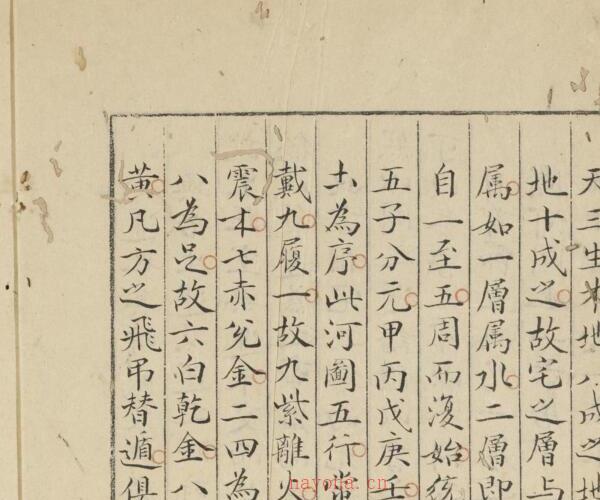 天三生木地八成之地
地十成之故宅之層与
属如一層属水二層即
自一至五周而復始
五子分元甲丙戊庚壬
土為序此河圖五行常
戴九履一故九紫離火
震木七赤兊金二四為
八為足故六白乾金八
黄凡方之飛吊替遁俱
hayotia.cn